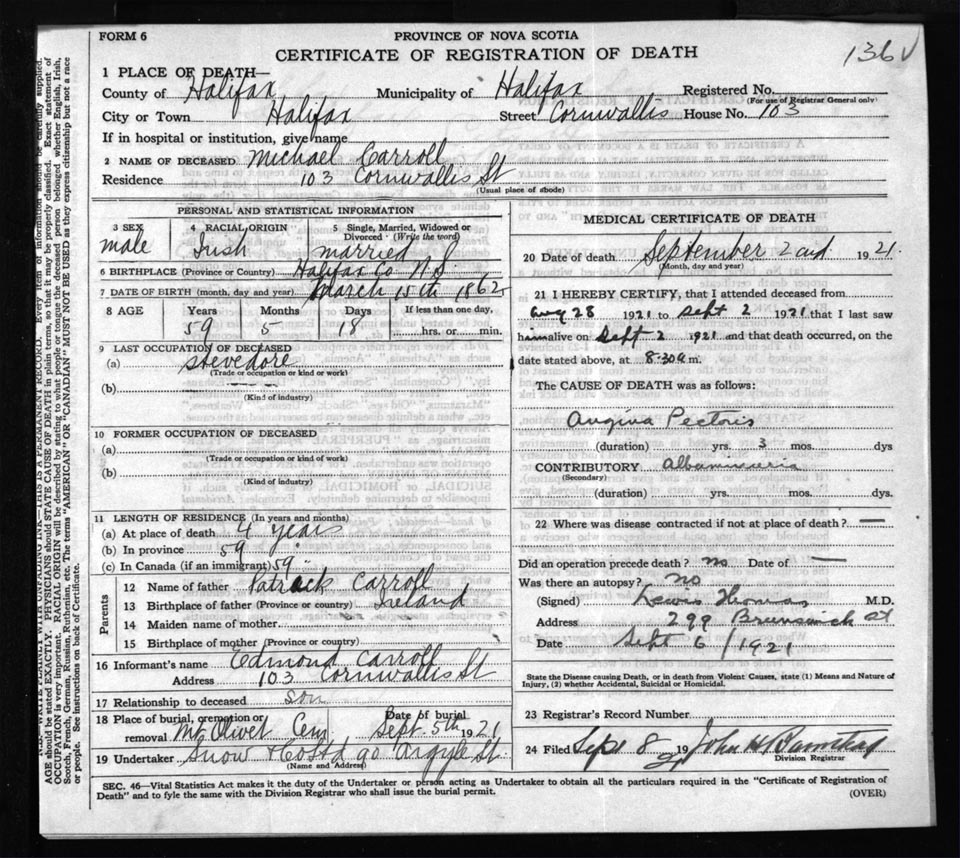 FORM 6
PROVINCE OF NOVA SCOTIA
CERTIFICATE OF REGISTRATION OF DEATH
136
1 PLACE OF DEATH—
County of Halifax Municipality of Halifax Registered No.
(For use of Registrar General only)
City or Town Halifax Street Cornwallis House No. 103
If in hospital or institution, give name
2 NAME OF DECEASED Michael Carroll
Residence 103 Cornwallis St
(Usual place of abode)
PERSONAL AND STATISTICAL INFORMATION
3 SEX male
4 RACIAL ORIGIN Irish
5 Single, Married, Widowed or Divorced (Write the word) married
6 BIRTHPLACE (Province or Country) Halifax Co N.S.
7 DATE OF BIRTH (month, day and year) March 15th 1862
8 AGE Years Months Days If less than one day,
59 5 18 hrs. or min.
9 LAST OCCUPATION OF DECEASED
(a) Stevedore
(Trade or occupation or kind or work)
(b)
(Kind of industry)
10 FORMER OCCUPATION OF DECEASED
(a)
(Trade or occupation or kind of work)
(b)
(Kind of industry)
11 LENGTH OF RESIDENCE (In years and months)
(a) At place of death 4 years
(b) In province 59
(c) In Canada (if an immigrant) 59
Parents
12 Name of father Patrick Carroll
13 Birthplace of father (Province or country) Ireland
14 Maiden name of mother
15 Birthplace of mother (Province or country)
16 Informant's name Edmond Carroll
Address 103 Cornwallis St
17 Relationship to deceased son
18 Place of burial, cremation or removal Mt. Olivet Cem. Date of burial Sept. 5th 1921
19 Undertaker Snow & Co Ltd 90 Argyle St.
(Name and Address)
MEDICAL CERTIFICATE OF DEATH
20 Date of death September 2nd 1921.
(Month, day and year)
21 I HEREBY CERTIFY, that I attended deceased from
Aug 28 1921 to Sept 2 1921 that I last saw
him alive on Sept 2 1921 and that death occurred, on the
date stated above, at 8.30 a m.
The CAUSE OF DEATH was as follows:
Angina Pectoris
(duration) yrs. 3 mos. dys
CONTRIBUTORY Albuminuria
(Secondary)
(duration) yrs. mos. dys.
22 Where was disease contracted if not at place of death? —
Did an operation precede death? No Date of —
Was there an autopsy? No
(Signed) Lewis Thomas M.D.
Address 299 Brunswick St
Date Sept 6 / 1921
State the Disease causing Death, or in death from Violent Causes, state (1) Means and Nature of
Injury, (2) whether Accidental, Suicidal or Homicidal.
23 Registrar's Record Number
24 Filed Sept 8 19 21 John H
Division Registrar
SEC. 46—Vital Statistics Act makes it the duty of the Undertaker or person acting as Undertaker to obtain all the particulars required in the "Certificate of Registration of
Death" and to fyle the same with the Division Registrar who shall issue the burial permit.
(OVER)
WRITE PLAINLY WITH UNFADING INK—THIS IS A PERMANENT RECORD. Every item of information should be carefully supplied.
AGE should be stated EXACTLY. PHYSICIANS should STATE CAUSE OF DEATH in plain terms, so that it may be properly classified. Exact statement of
OCCUPATION is very important. RACIAL ORIGIN will be described by stating to what people or tongue the deceased person belonged whether English, Irish,
Scotch, French, German, Russian, Ruthenian, etc. The terms "AMERICAN" OR "CANADIAN" MUST NOT BE USED as they express citizenship but not a race
or people. See instructions on back of Certificate.